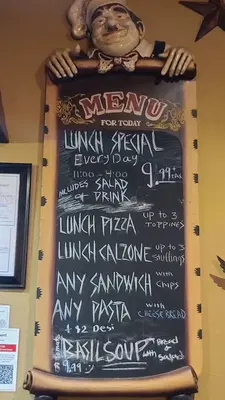 MENU
FOR TODAY
LUNCH SPECIAL
EveryDay
11:00 - 4:00
9.99
INCLUDES SALAD
or DRINK
LUNCH PIZZA up to 3
TOPPINGS
LUNCH CALZONE up to 3
stuffings
ANY SANDWICH with
CHIPS
ANY PASTA WITH
CHEESEBREAD
+ $2 Desi
BASIL SOUP Bread
with Salad
$9.99